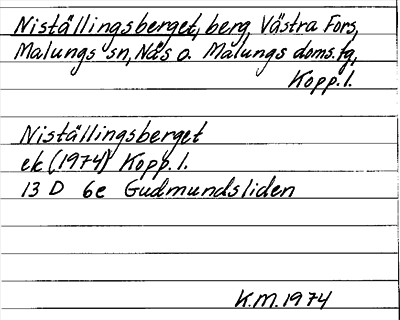 Niställingsberget, berg, Västra Fors,
Malungs sn, Nås o. Malungs doms.tg,
Kopp.l.
Niställingsberget
ek (1974) Kopp.l.
13 D 6e Gudmundsliden
K.M. 1974